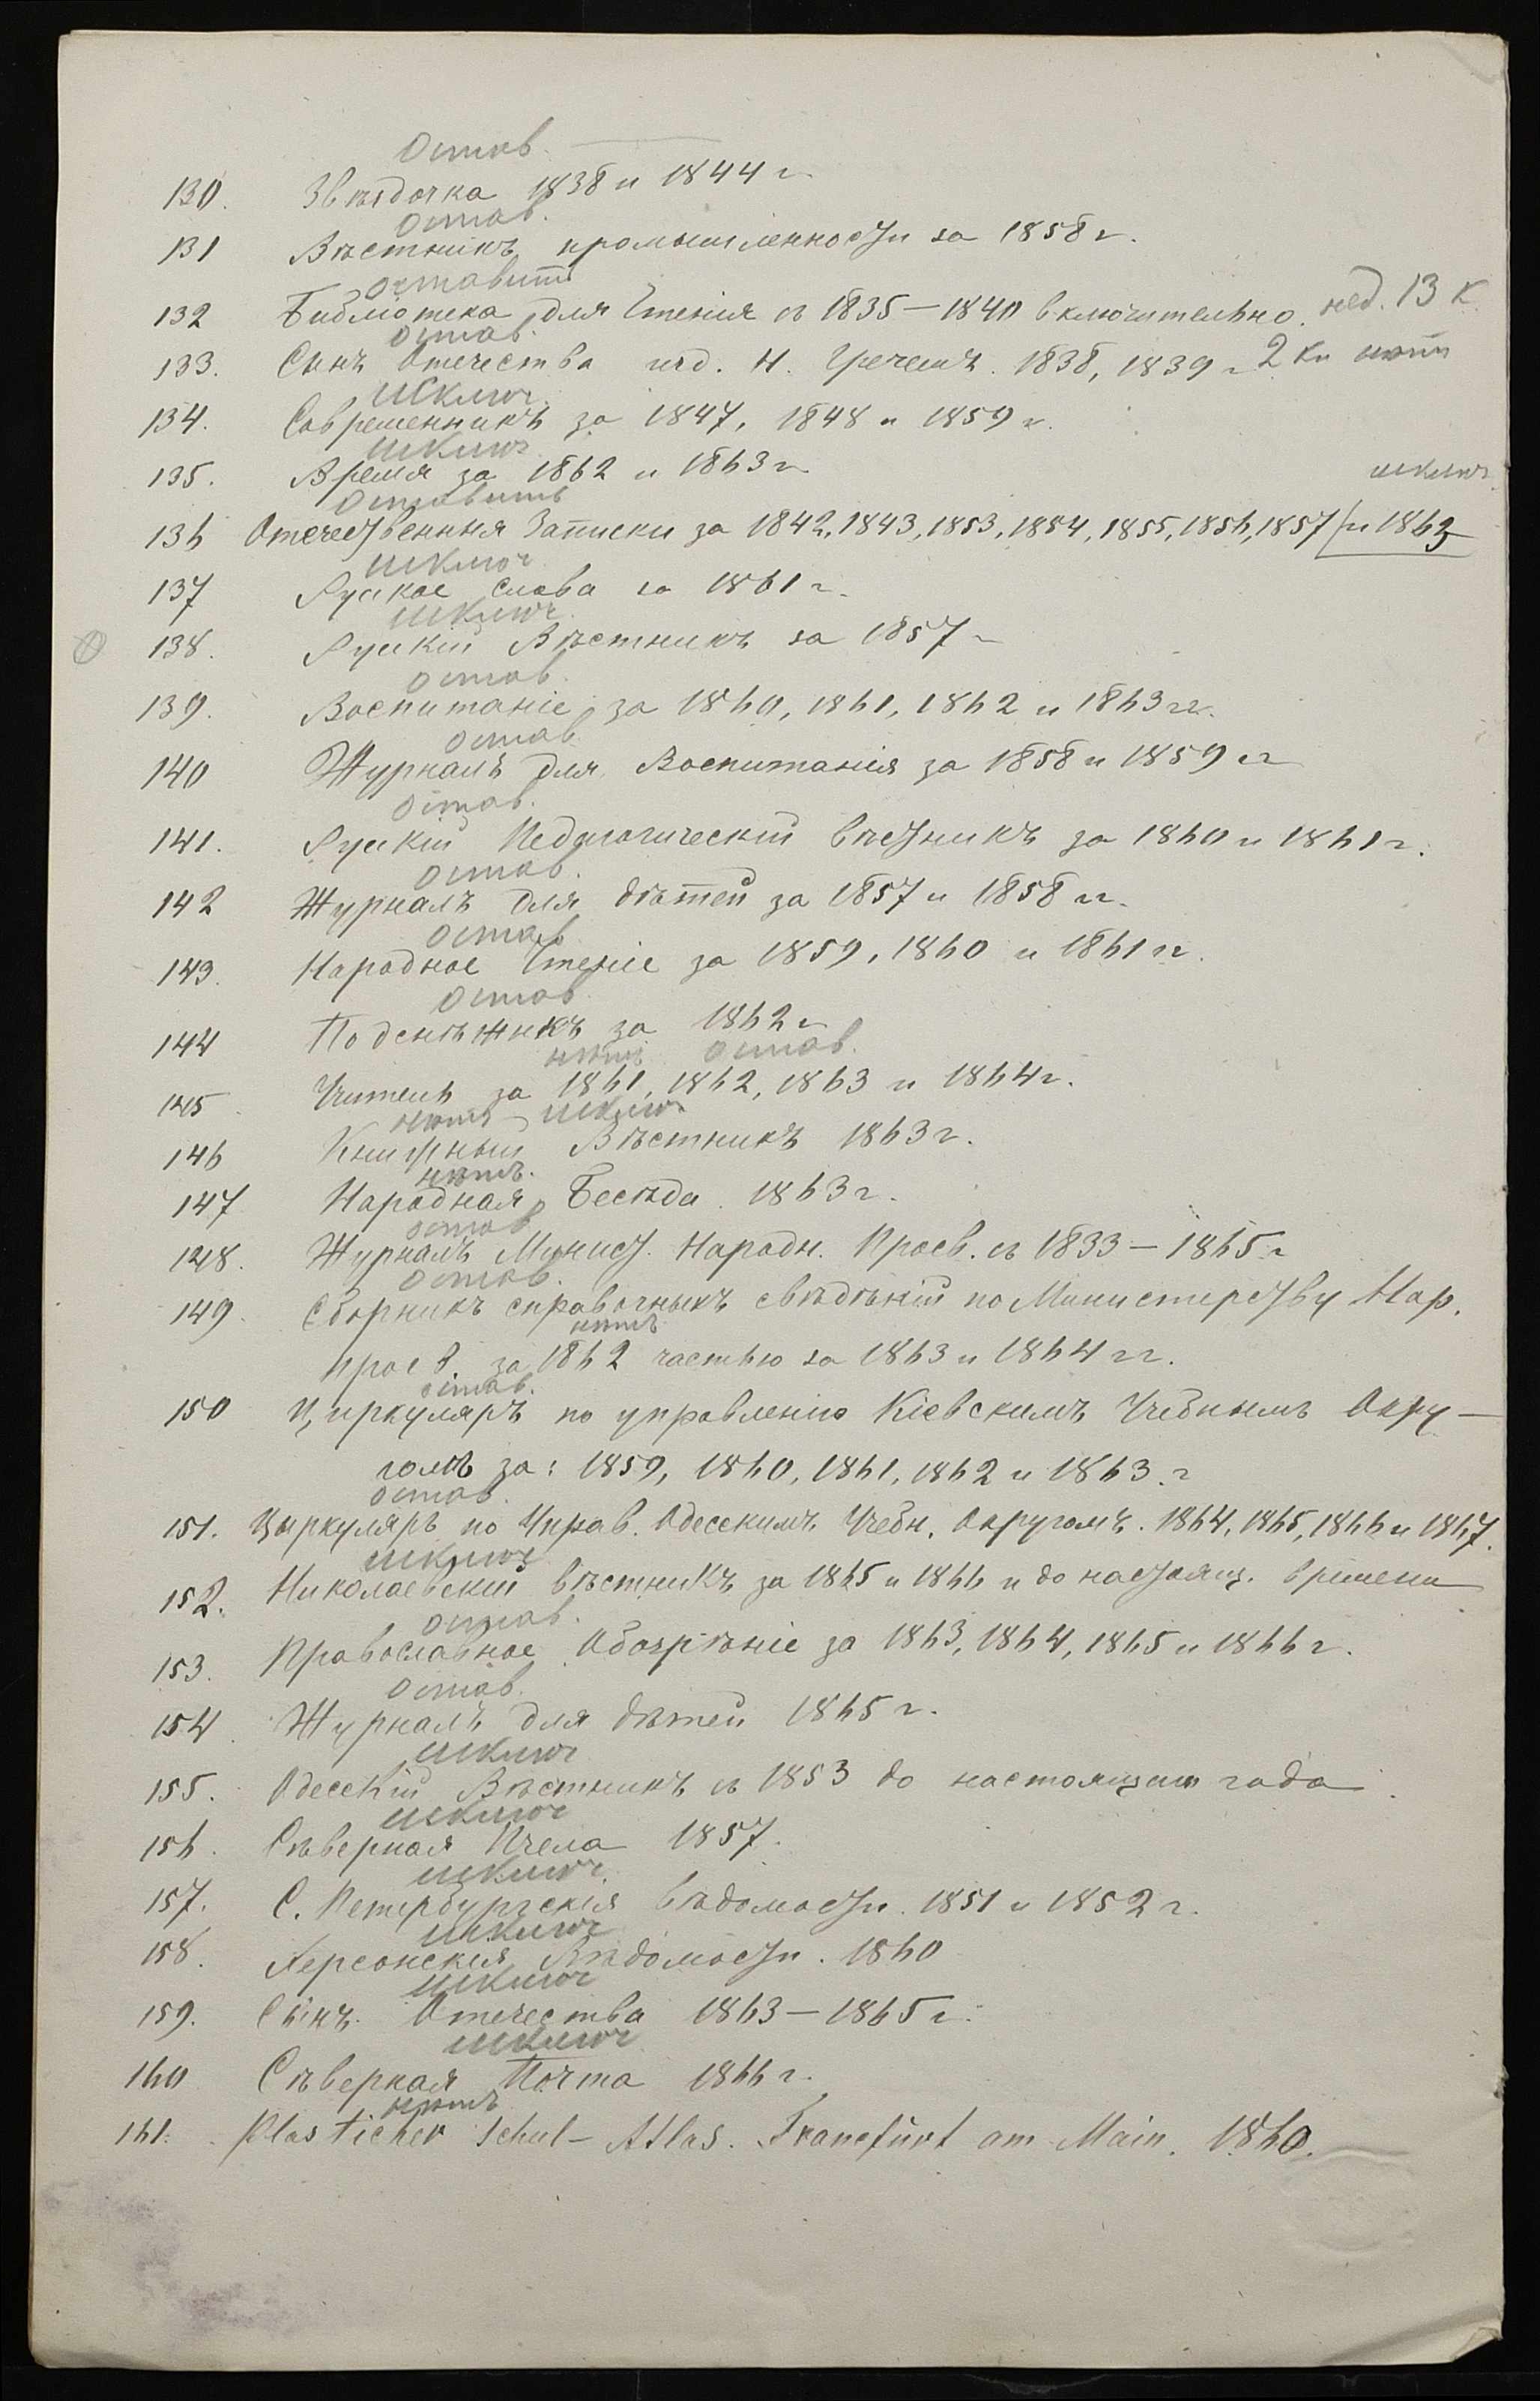 Остав.
130. Звѣздочка 1838 и 1844 г.
остав.
131 Вѣстникъ промышленности за 1858 г.
оставить
132 Библіотека для Чтенія съ 1835 — 1840 включительно. нед. 13 к.
остав.
133. Сынъ Отечества изд. Н. Гречемъ. 1838, 1839 г 2 кн нѣтъ
исключ.
134. Современникъ за 1847, 1848 и 1859 г.
исключ
135. Время за 1862 и 1863 г
исключ.
Оставить
136 Отечественныя Записки за 1842, 1843, 1853, 1854, 1855, 1856, 1857 / и 1863
исключ
137 Руское Слово за 1861 г.
исключ
138. Рускій Вѣстникъ за 1857 г
остав.
139. Воспитаніе за 1860, 1861, 1862 и 1863 гг.
остав
140 Журналъ для Воспитанія за 1858 и 1859 гг
остав.
141. Рускій Педагогическій вѣстникъ за 1860 и 1861 г.
остав.
142 Журналъ для дѣтей за 1857 и 1858 гг.
остав
143. Народное Чтеніе за 1859, 1860 и 1861 гг.
остав
144 Подснѣжникъ за 1862 г
нѣтъ остав.
145 Учитель за 1861, 1862, 1863 и 1864 г.
нѣтъ исключ
146 Книжный Вѣстникъ 1863 г.
нѣтъ.
147 Народная Бесѣда. 1863 г.
остав
148. Журналъ Минист. Народн. Просв. съ 1833 — 1865 г
остав.
149. Сборникъ справочныхъ свѣдѣній по Министерству Нар.
нѣтъ
просв. за 1862 частью за 1863 и 1864 гг.
остав.
150 Циркуляръ по управленію Кіевскимъ Учебнымъ Окру-
гомъ за: 1859, 1860, 1861, 1862 и 1863. г
остав.
151. Циркуляръ по Управ. Одесскимъ Учебн. Округомъ. 1864, 1865, 1866 и 1867.
исключ
152. Николаевскій вѣстникъ за 1865 и 1866 и до настоящ. времени
остав.
153. Православное Обозрѣніе за 1863, 1864, 1865 и 1866 г.
Остав.
154 Журналъ для дѣтей 1865 г.
исключ
155. Одесскій Вѣстникъ съ 1853 до настоящаго года.
исключ
156. Сѣверная Пчела 1857.
исключ.
157. С. Петербургскія вѣдомости. 1851 и 1852 г.
исключ
158. Херсонскія Вѣдомости. 1860
исключ
159. Сынъ Отечества 1863 — 1865 г.
исключ
160 Сѣверная Почта 1866 г.
нѣтъ
161. Plasticher Schul- Atlas. Frankfurt am Main. 1860.